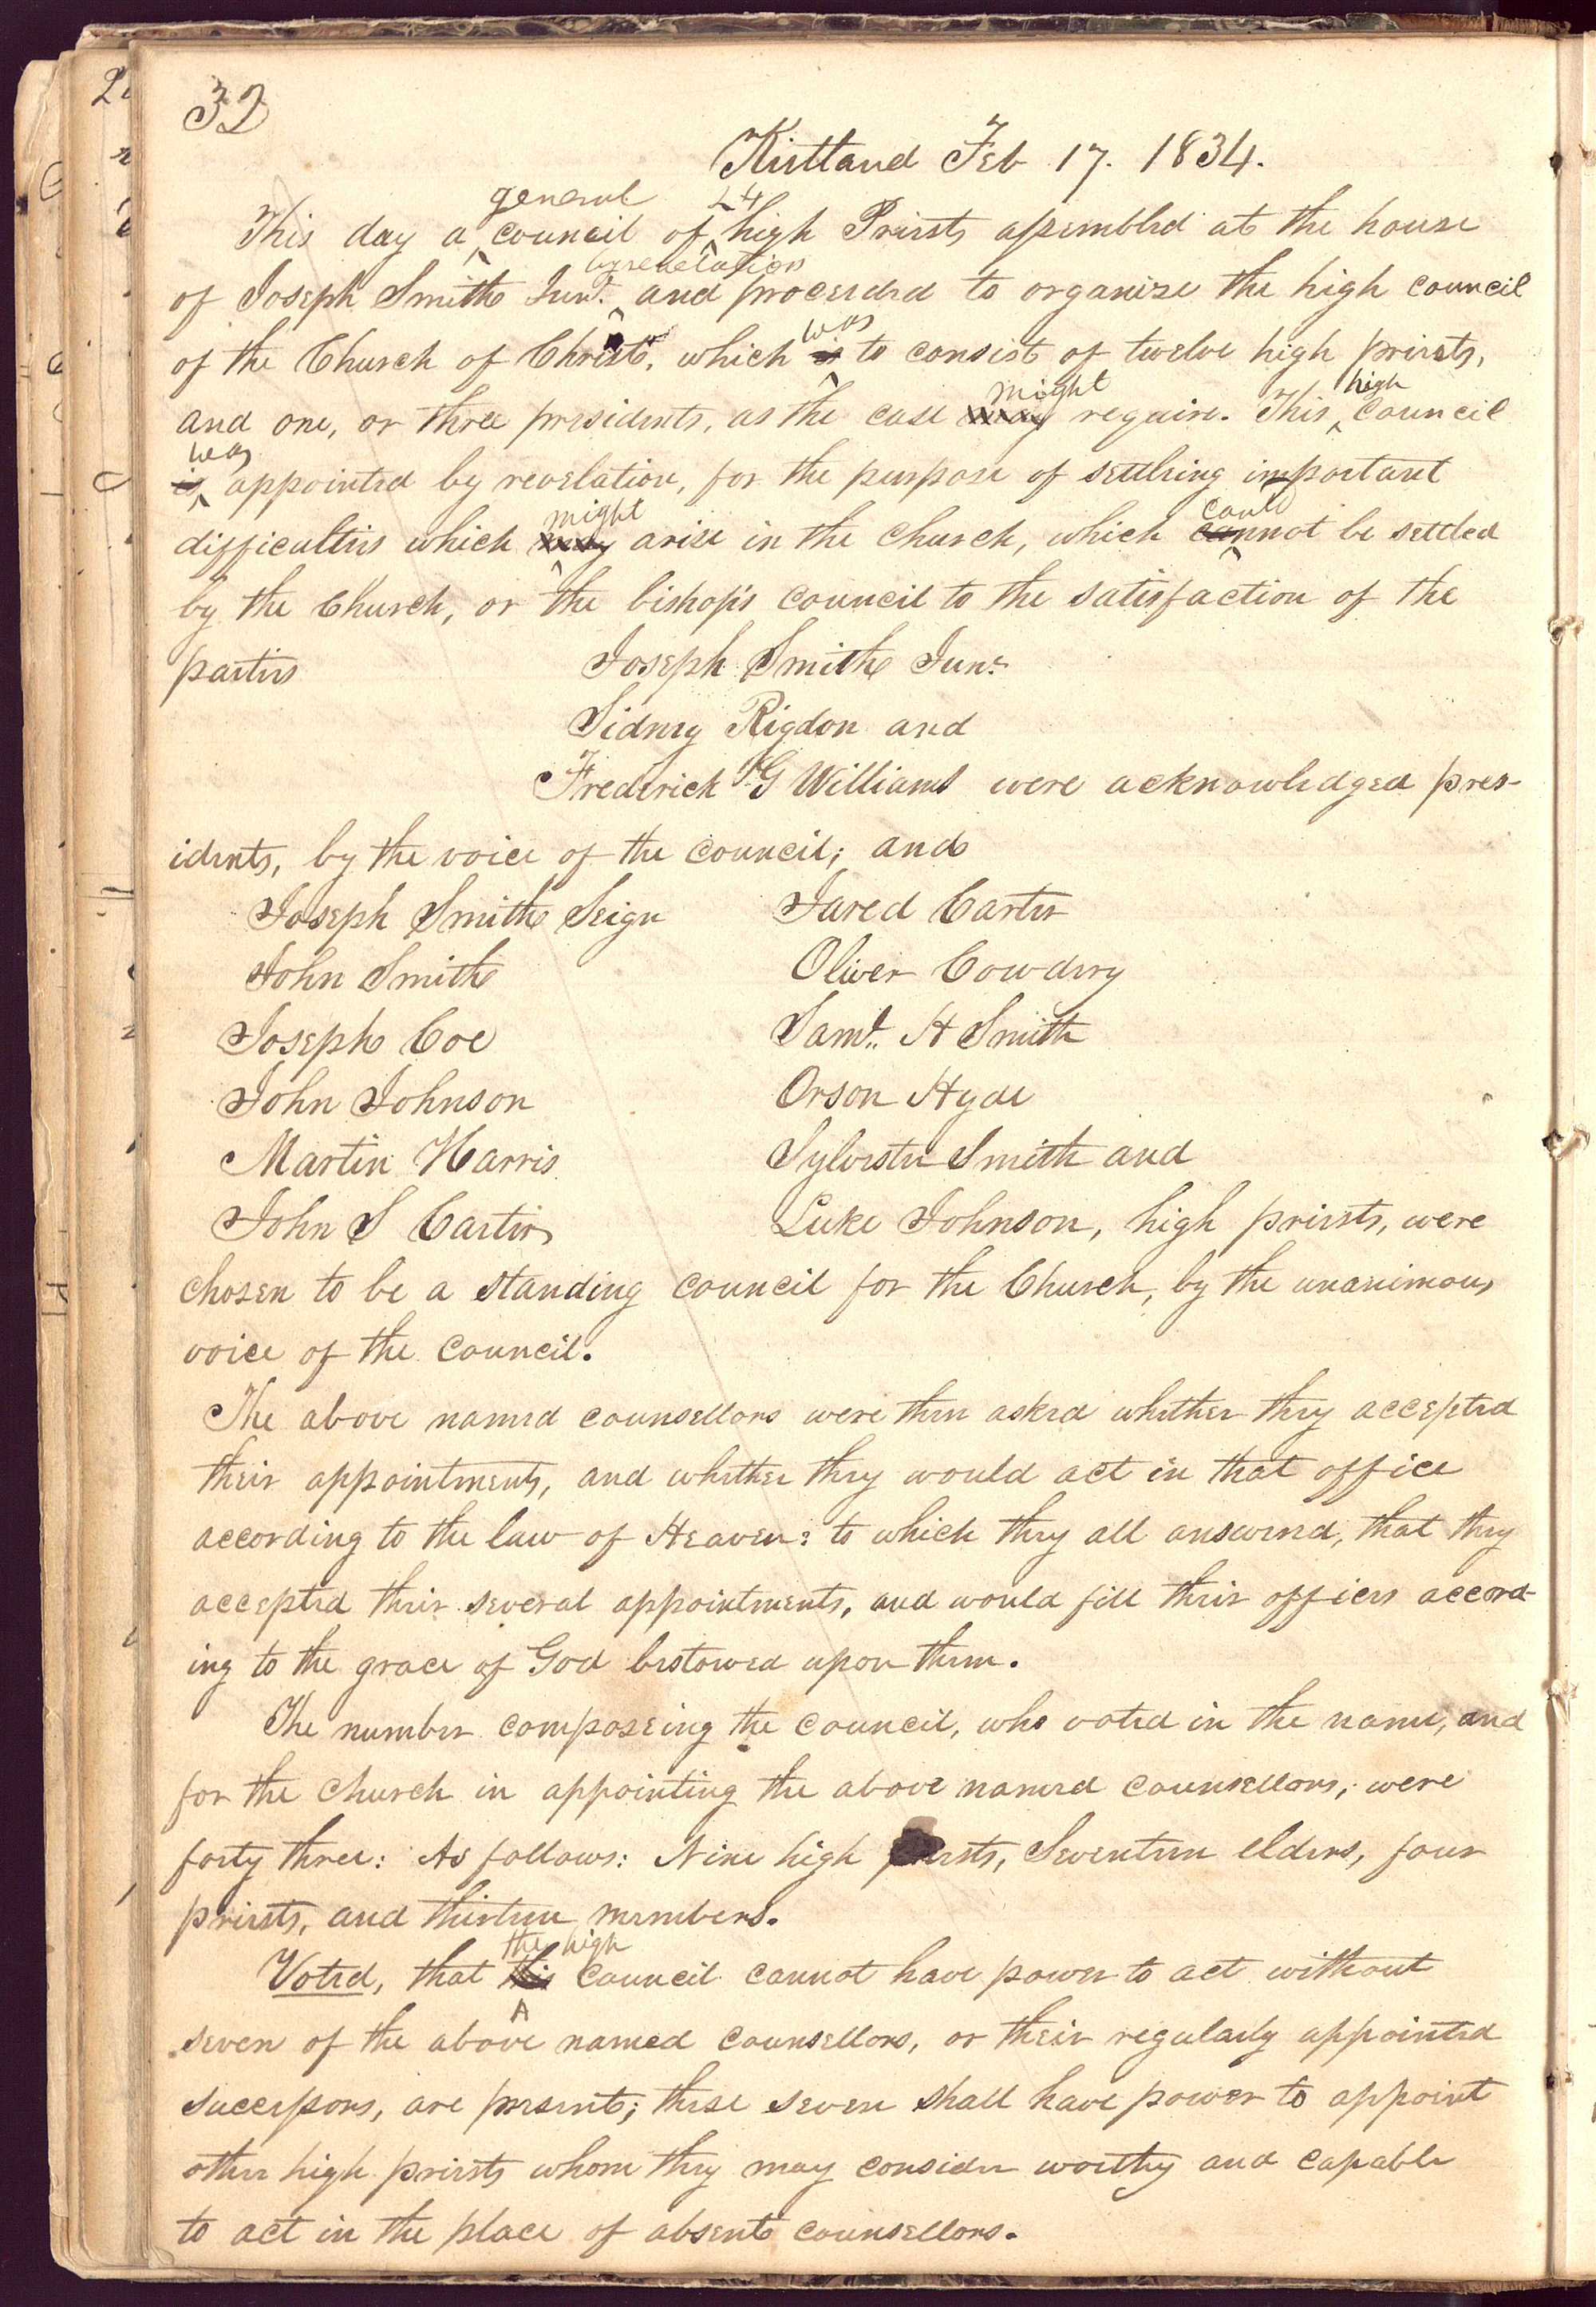 32
Kirtland Feb 17. 1834.
general 24
This day a council of high Priests assembled at the house
by revelation
of Joseph Smith Junr. and proceeded to organize the high council
was
of the Church of Christ, which is to consist of twelve high priests,
might high
and one, or three presidents, as the case may require. This council
was
is appointed by revelation, for the purpose of settleing important
might could
difficulties which may arise in the church, which cannot be settled
by the Church, or the bishop's council to the satisfaction of the
parties Joseph Smith Junr.
Sidney Rigdon and
Frederick G Williams were acknowledged pres-
idents, by the voice of the council; and
Joseph Smith Seign Jared Carter
John Smith Oliver Cowdery
Joseph Coe Saml. H Smith
John Johnson Orson Hyde
Martin Harris Sylvester Smith and
John S Carter Luke Johnson, high priests, were
chosen to be a standing council for the Church, by the unanimous
voice of the council.
The above named counsellors were then asked whether they accepted
their appointments, and whether they would act in that office
according to the law of Heaven: to which they all answered, that they
accepted their several appointments, and would fill their offices accord-
ing to the grace of God bestowed upon them.
The number composeing the council, who voted in the name, and
for the church in appointing the above named counsellors, were
forty three: As follows: Nine high priests, Seventeen elders, four
priests, and thirteen members.
the high
Voted, that this council cannot have power to act without
seven of the above named counsellors, or their regularly appointed
successors, are present; these seven shall have power to appoint
other high priests whom they may consider worthy and capable
to act in the place of absent counsellors.